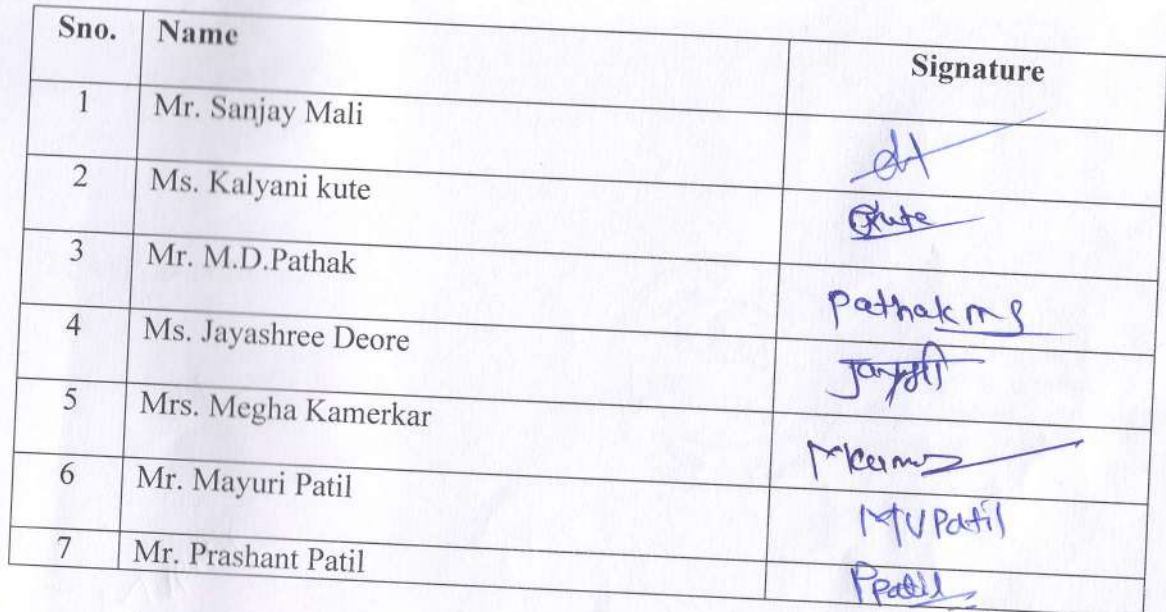 Sno. Name Signature
1 Mr. Sanjay Mali
2 Ms. Kalyani kute
3 Mr. M.D.Pathak Pathak
4 Ms. Jayashree Deore
5 Mrs. Megha Kamerkar
6 Mr. Mayuri Patil MVPatil
7 Mr. Prashant Patil PPatil